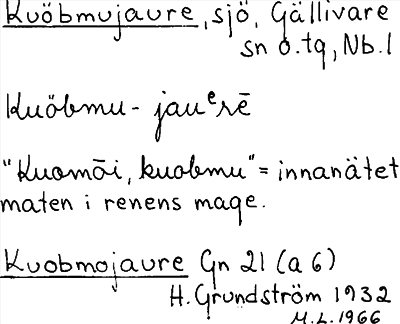 Kuöbmujaure, sjö, Gällivare
sn o.tg, Nb.l
Kuöbmu- jauᵉrē
"Kuomōi, kuobmu" = innanätet
maten i renens mage.
Kuobmojaure Gn 21 (a 6)
H. Grundström 1932
M.L. 1966